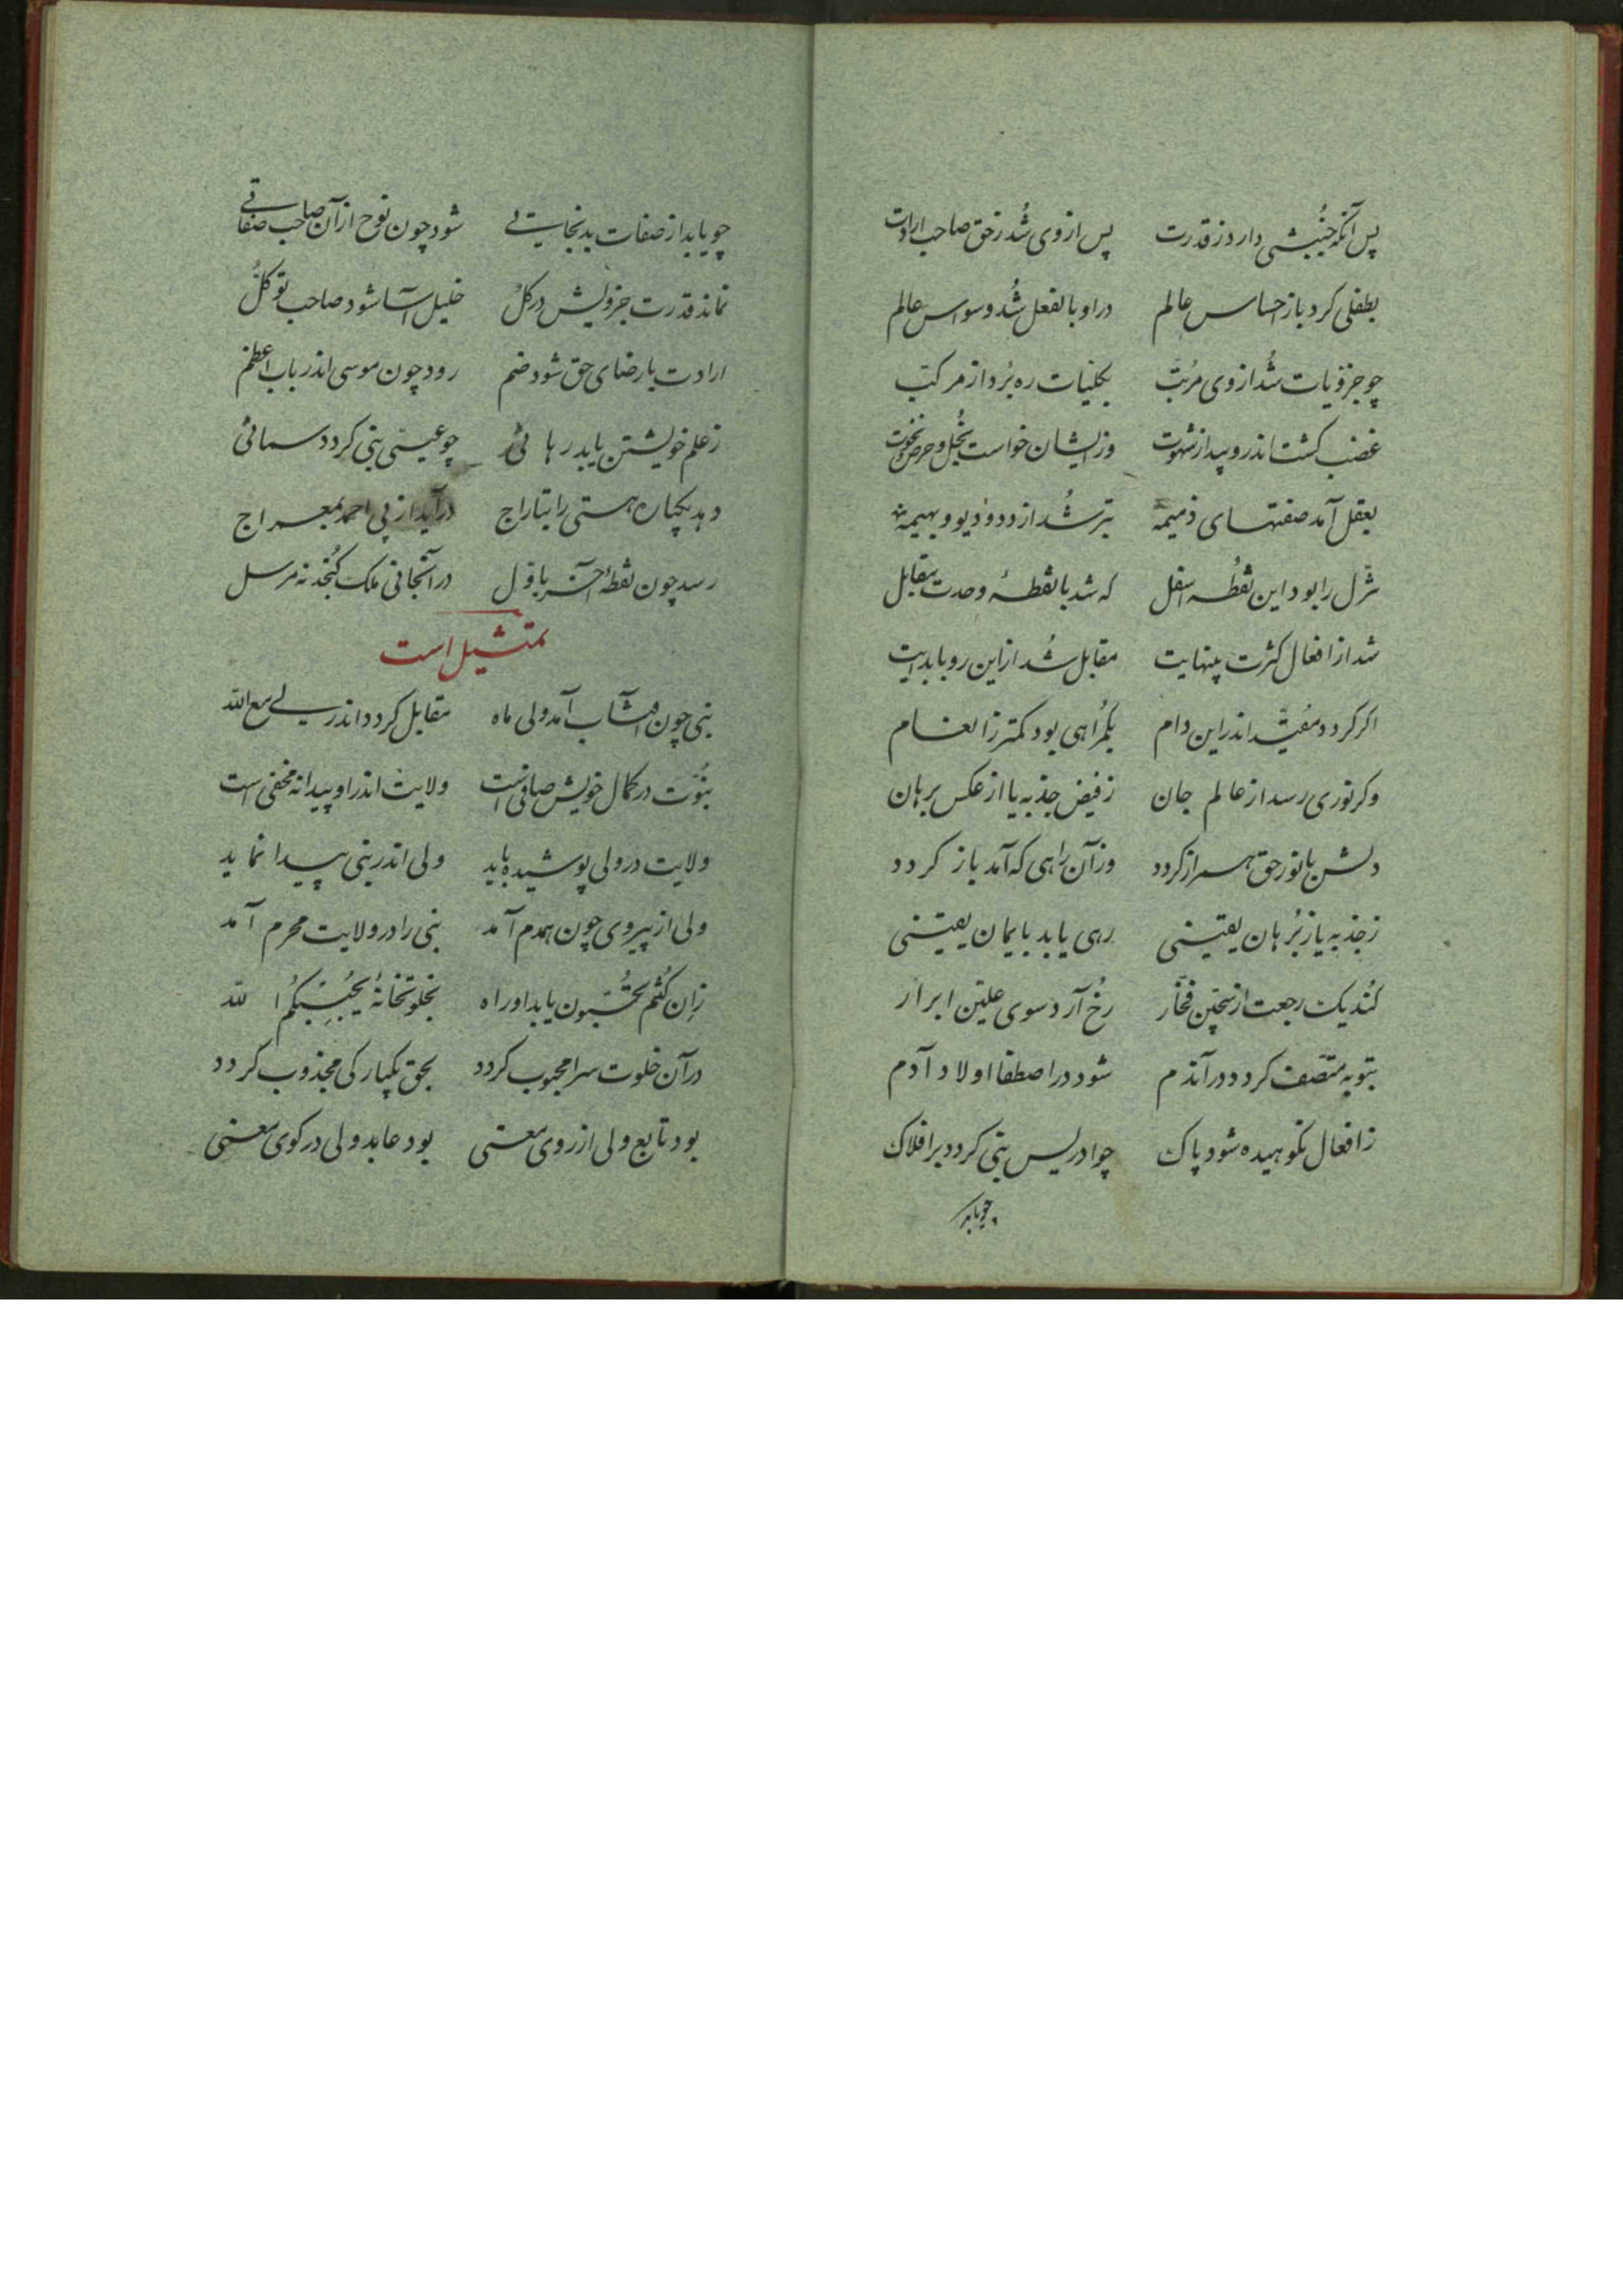 پس آنکه جُنبشی دارد ز قدرت پس از وی شُد ز حق صاحب ارادت
بطفلی کرد باز احساس عالم در او بالفعل شُد وسواس عالم
چو جزویات شُد از وی مرُتبّ بکلیّات ره بُرد از مرکبّ
غضب کشت اندرو پیدا ز شهوت وز ایشان خواست بُخل و حرص و نخوت
بفعل آمد صفتهای ذمیمه بتر شُد از دد و دیو و بهیمه
تنزّل را بود این نُقطه اسفل که شد با نقطهٔ وحدت مقابل
شد از افعال کثرت بینهایت مقابل شُد از این رو با بدایت
اکر کردد مقُیّد اندر این دام بکمُراهی بود کمتر ز انعام
وکر نوری رسد از عالم جان ز فیض جذبه یا از عکس برهان
دلش با نور حق همراز کردد وز آن راهی که آمد باز کردد
ز جذبه یا ز بُرهان یقینی رهی یابد بایمان یقینی
کُند یک رجعت از سجّین فجّار رُخ آرد سوی علیّن ابرار
بتوبه متّصف کردد در آندم شود در اصطفا اولاد آدم
ز افعال نکوهیده شود پاک چو ادریس نبی کردد بر افلاک
چو یابد
چو یابد از صفات بد نجاتی شود چون نوح از آن صاحب صفاتی
نماند قدرت جزویش در کلُ خلیل آسا شود صاحب توکلُّ
ارادت با رضای حق شود ضم رود چون موسی اندر باب اعظم
ز علم خویشتن یابد رهائی چو عیسی نبی کردد سمائی
دهد یکباره هستی را بتاراج درآید از پی احمد بمعراج
رسد چون نقطهٔ آخر باوّل در آنجا نی ملک کُنجد نه مرسل
تمثیل است
نبی چون آفتاب آمد ولی ماه مقابل کردد اندر لی مع الله
نبُوّت در کمال خویش صافی است ولایت اندر او پیدا نه مخفی است
ولایت در ولی پوشیده باید ولی اندر نبی پیدا نماید
ولی از پیروی چون همدم آمد نبی را در ولایت محرم آمد
زِان کُنتُم تُحبّون یابد او راه بخلوتخانهٔ یُحببِکُم الله
در آن خلوت سرا محبوب کردد بحق یکبارکی مجذوب کردد
بود تابع ولی از روی معنی بود عابد ولی در کوی معنی